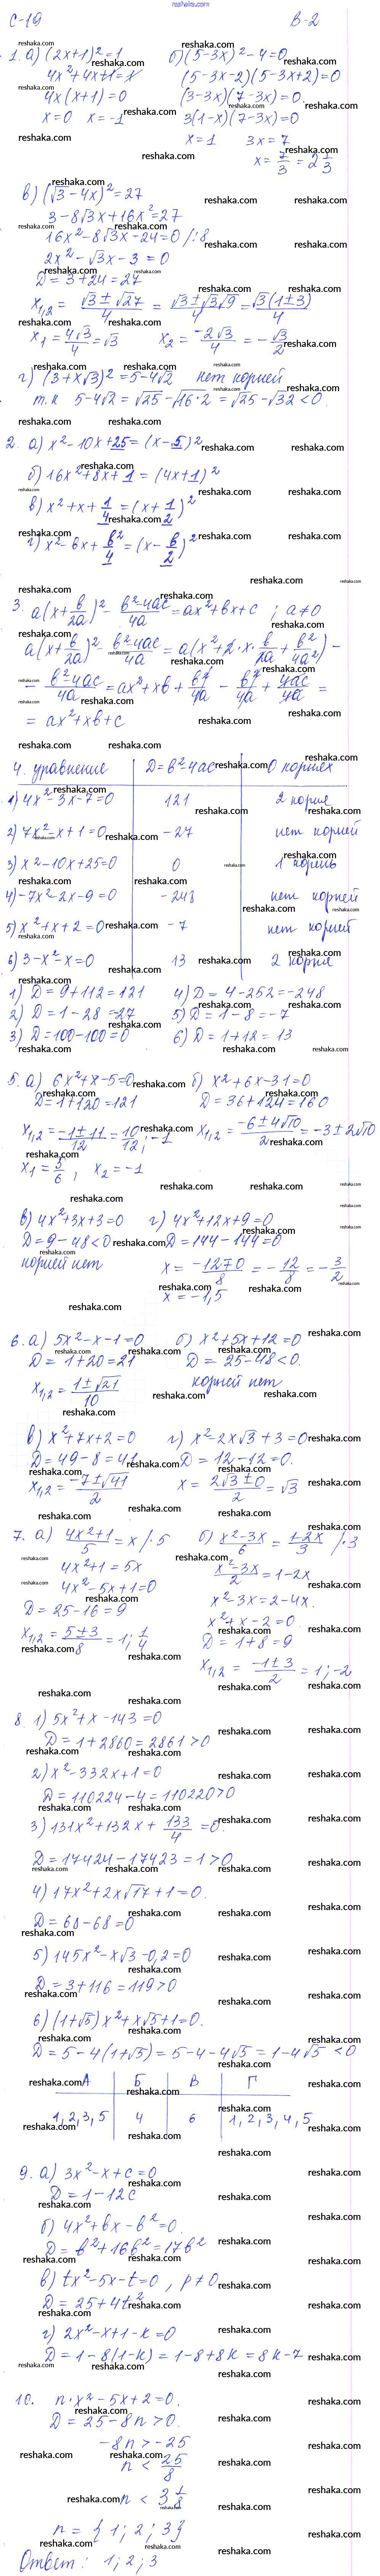 reshaka.com
С-19 В-2
1. а) (2x+1)²=1
4x²+4x+1=1
4x(x+1)=0
x=0 x=-1
б) (5-3x)²-4=0
(5-3x-2)(5-3x+2)=0
(3-3x)(7-3x)=0
3(1-x)(7-3x)=0
x=1 3x=7
x=7/3=2 1/3
в) (√3-4x)²=27
3-8√3x+16x²=27
16x²-8√3x-24=0 /:8
2x²-√3x-3=0
D=3+24=27
x₁,₂=(√3±√27)/4=(√3±√3√9)/4=√3(1±3)/4
x₁=4√3/4=√3 x₂=-2√3/4=-√3/2
г) (3+x√3)²=5-4√2 нет корней
т.к 5-4√2=√25-√16·2=√25-√32<0.
2. а) x²-10x+25=(x-5)²
б) 16x²+8x+1=(4x+1)²
в) x²+x+1/4=(x+1/2)²
г) x²-bx+b²/4=(x-b/2)²
3. a(x+b/2a)²-(b²-4ac)/4a=ax²+bx+c; a≠0
a(x+b/2a)²-(b²-4ac)/4a=a(x²+2·x·b/2a+b²/4a²)-
-(b²-4ac)/4a=ax²+xb+b²/4a-b²/4a+4ac/4a=
=ax²+xb+c
4. уравнение D=b²-4ac О корнях
1) 4x²-3x-7=0 121 2 корня
2) 7x²-x+1=0 -27 нет корней
3) x²-10x+25=0 0 1 корень
4) -7x²-2x-9=0 -248 нет корней
5) x²+x+2=0 -7 нет корней
6) 3-x²-x=0 13 2 корня
1) D=9+112=121 4) D=4-252=-248
2) D=1-28=-27 5) D=1-8=-7
3) D=100-100=0 6) D=1+12=13
5. а) 6x²+x-5=0 б) x²+6x-31=0
D=1+120=121 D=36+124=160
x₁,₂=(-1±11)/12=10/12; -1 x₁,₂=(-6±4√10)/2=-3±2√10
x₁=5/6; x₂=-1
в) 4x²+3x+3=0 г) 4x²+12x+9=0
D=9-48<0 D=144-144=0
корней нет x=(-12±0)/8=-12/8=-3/2
x=-1,5
6. а) 5x²-x-1=0 б) x²+5x+12=0
D=1+20=21 D=25-48<0.
x₁,₂=(1±√21)/10 корней нет
в) x²+7x+2=0 г) x²-2x√3+3=0
D=49-8=41 D=12-12=0.
x₁,₂=(-7±√41)/2 x=(2√3±0)/2=√3
7. а) (4x²+1)/5=x /·5
4x²+1=5x
4x²-5x+1=0
D=25-16=9
x₁,₂=(5±3)/8=1; 1/4
б) (x²-3x)/6=(1-2x)/3 /·3
(x²-3x)/2=1-2x
x²-3x=2-4x.
x²+x-2=0
D=1+8=9
x₁,₂=(-1±3)/2=1; -2
8. 1) 5x²+x-143=0
D=1+2860=2861>0
2) x²-332x+1=0
D=110224-4=110220>0
3) 131x²+132x+133/4=0.
D=17424-17423=1>0
4) 17x²+2x√17+1=0.
D=68-68=0
5) 145x²-x√3-0,2=0
D=3+116=119>0
6) (1+√5)x²+x√5+1=0.
D=5-4(1+√5)=5-4-4√5=1-4√5<0
А Б В Г
1,2,3,5 4 6 1,2,3,4,5
9. а) 3x²-x+c=0
D=1-12c
б) 4x²+bx-b²=0.
D=b²+16b²=17b²
в) tx²-5x-t=0, p≠0
D=25+4t²
г) 2x²-x+1-k=0
D=1-8(1-k)=1-8+8k=8k-7
10. n·x²-5x+2=0.
D=25-8n>0.
-8n>-25
n<25/8
n<3 1/8
n={1; 2; 3}
Ответ: 1; 2; 3